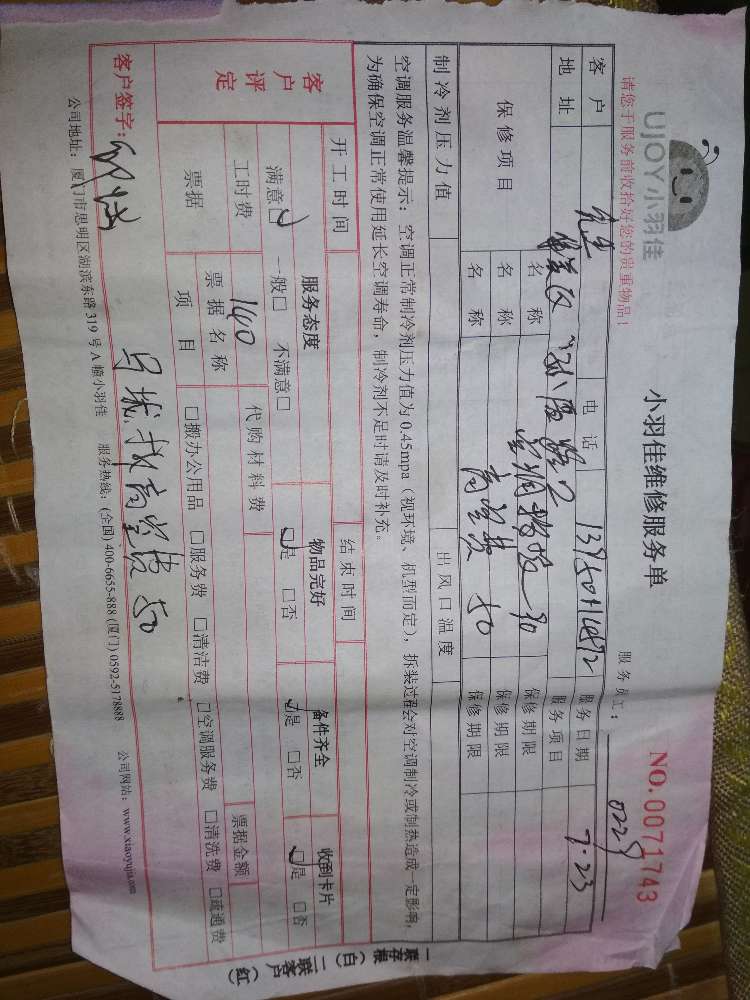 UJOY小羽佳
小羽佳维修服务单
NO.0071743
请您于服务前收拾好您的贵重物品!
服务员工: 02259
客户 电话 服务日期 7.23
地址 服务项目
保修项目 名称 保修期限
名称 保修期限
名称 高空费 50 保修期限
制冷剂压力值 出风口温度
空调服务温馨提示:空调正常制冷剂压力值为0.45mpa(视环境、机型而定),拆装过程会对空调制冷或制热造成一定影响,
为确保空调正常使用延长空调寿命,制冷剂不足时请及时补充。
开工时间 结束时间
客户评定 服务态度 物品完好 备件齐全 收到卡片
满意☑ 一般□ 不满意□ ☑是 □否 ☑是 □否 ☑是 □否
工时费 140 代购材料费
票据 票据名称 票据金额
项目 □搬办公用品 □服务费 □清洁费 □空调服务费 □清洗费 □疏通费
客户签字: 高空费 50
公司地址:厦门市思明区湖滨东路319号A幢小羽佳 服务热线:(全国)400-6655-888 (厦门)0592-5178888 公司网站:www.xiaoyujia.com
一联存根(白) 二联客户(红)